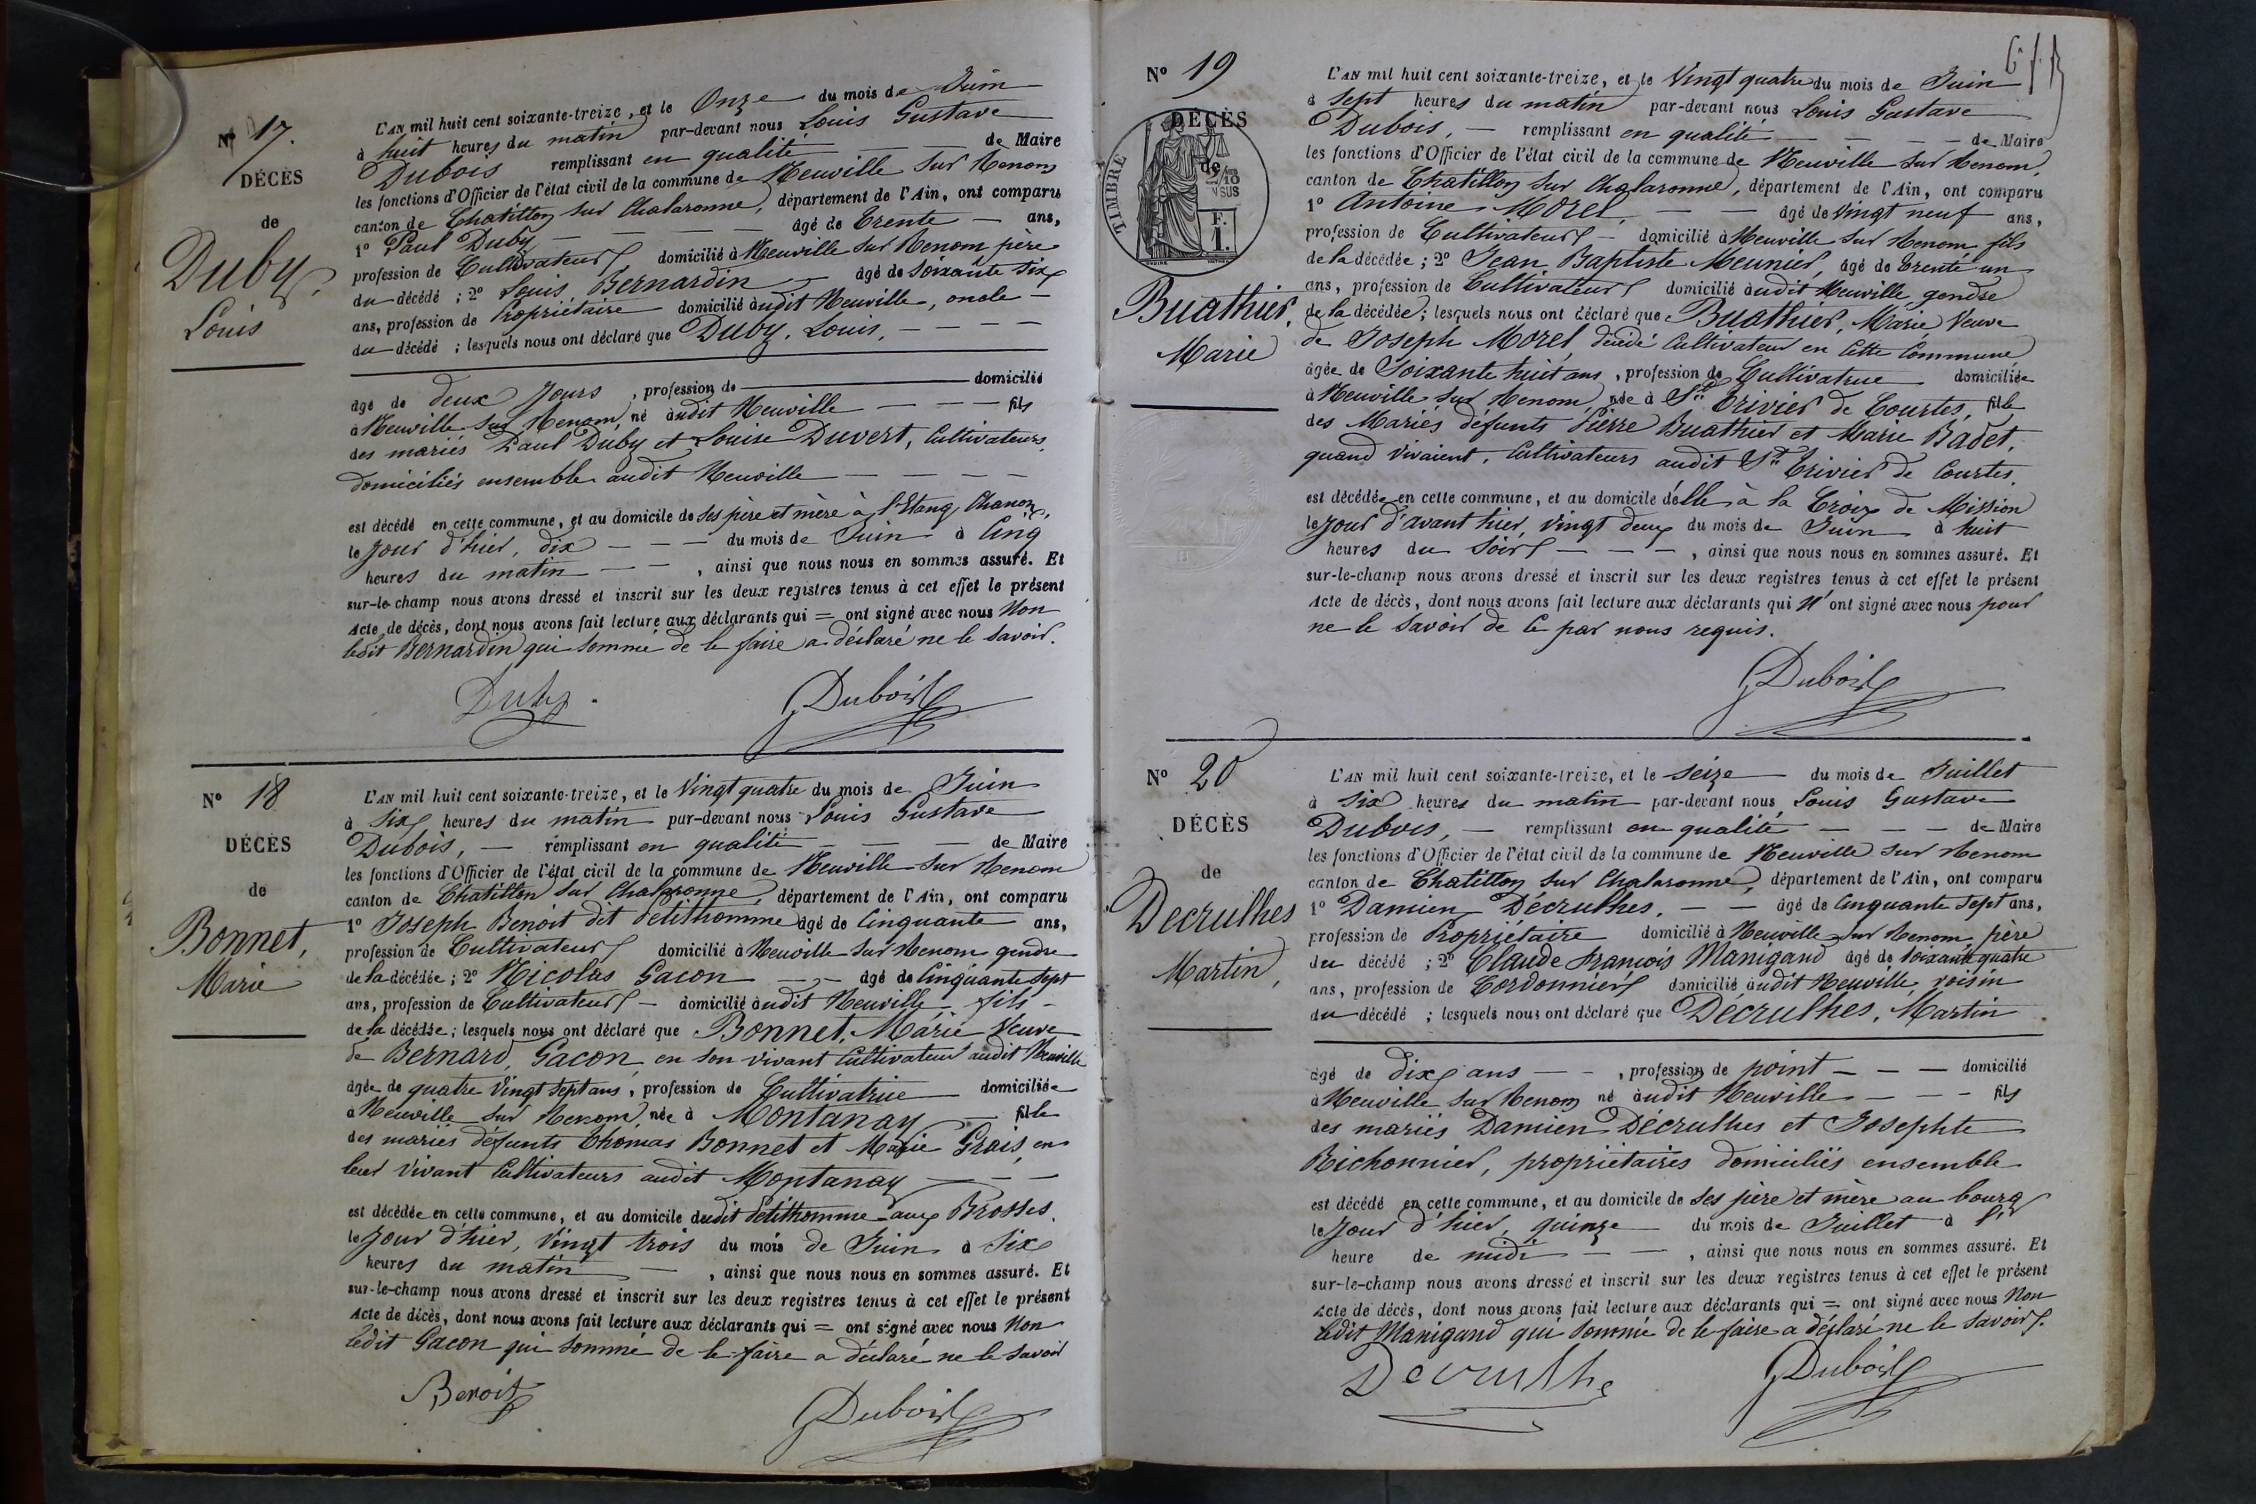 N° 17.
DÉCÈS
de
Duby,
Louis
L'AN mil huit cent soixante-treize, et le Onze du mois de Juin
à huit heures du matin par-devant nous Louis Gustave
Dubois remplissant en qualité de Maire
les fonctions d'Officier de l'état civil de la commune de Neuville sur Renom
canton de Chatillon sur Chalaronne, département de l'Ain, ont comparu
1° Paul Duby âgé de trente ans,
profession de Cultivateur domicilié à Neuville sur Renom père
du décédé ; 2° Louis Bernardin âgé de soixante six
ans, profession de Propriétaire domicilié audit Neuville, oncle
du décédé ; lesquels nous ont déclaré que Duby, Louis,
âgé de deux jours, profession de domicilié
à Neuville sur Renom, né audit Neuville fils
des mariés Paul Duby et Louise Duvert, Cultivateurs,
domiciliés ensemble audit Neuville
est décédé en cette commune, et au domicile de ses père et mère à l'Etang Chanon,
le jour d'hier, dix du mois de Juin à Cinq
heures du matin, ainsi que nous nous en sommes assuré. Et
sur-le-champ nous avons dressé et inscrit sur les deux registres tenus à cet effet le présent
Acte de décès, dont nous avons fait lecture aux déclarants qui = ont signé avec nous Non
ledit Bernardin qui sommé de le faire a déclaré ne le savoir.
Duby. Dubois
N° 18
DÉCÈS
de
Bonnet,
Marie
L'AN mil huit cent soixante-treize, et le Vingt quatre du mois de Juin
à six heures du matin par-devant nous Louis Gustave
Dubois, remplissant en qualité de Maire
les fonctions d'Officier de l'état civil de la commune de Neuville sur Renom
canton de Chatillon sur Chalaronne, département de l'Ain, ont comparu
1° Joseph Benoit dit Petithomme âgé de Cinquante ans,
profession de Cultivateur domicilié à Neuville sur Renom gendre
de la décédée ; 2° Nicolas Gacon âgé de Cinquante sept
ans, profession de Cultivateur domicilié audit Neuville, fils
de la décédée ; lesquels nous ont déclaré que Bonnet, Marie Veuve
de Bernard Gacon, en son vivant Cultivateur audit Neuville
âgée de quatre vingt sept ans, profession de Cultivatrice domiciliée
à Neuville sur Renom, née à Montanay fille
des mariés défunts Thomas Bonnet et Marie Grais, en
leur vivant Cultivateurs audit Montanay
est décédée en cette commune, et au domicile dudit Petithomme aux Brosses,
le jour d'hier, vingt trois du mois de Juin à six
heures du matin, ainsi que nous nous en sommes assuré. Et
sur-le-champ nous avons dressé et inscrit sur les deux registres tenus à cet effet le présent
Acte de décès, dont nous avons fait lecture aux déclarants qui = ont signé avec nous Non
ledit Gacon qui sommé de le faire a déclaré ne le savoir
Benoit Dubois
N° 19
DÉCÈS
de
TIMBRE
F.
1.
Buathier,
Marie
L'AN mil huit cent soixante-treize, et le Vingt quatre du mois de Juin
à sept heures du matin par-devant nous Louis Gustave
Dubois, remplissant en qualité de Maire
les fonctions d'Officier de l'état civil de la commune de Neuville sur Renom,
canton de Chatillon sur Chalaronne, département de l'Ain, ont comparu
1° Antoine Morel, âgé de Vingt neuf ans,
profession de Cultivateur domicilié à Neuville sur Renom, fils
de la décédée ; 2° Jean Baptiste Meunier, âgé de trente un
ans, profession de Cultivateur domicilié audit Neuville, gendre
de la décédée ; lesquels nous ont déclaré que Buathier, Marie, Veuve
de Joseph Morel, décédé Cultivateur en cette Commune,
âgée de Soixante huit ans, profession de Cultivatrice domiciliée
à Neuville sur Renom, née à St Trivier de Courtes, fille
des Mariés défunts Pierre Buathier et Marie Badet,
quand vivaient, Cultivateurs audit St Trivier de Courtes,
est décédée en cette commune, et au domicile d'elle à la Croix de Mission
le jour d'avant hier, vingt deux du mois de Juin à huit
heures du soir, ainsi que nous nous en sommes assuré. Et
sur-le-champ nous avons dressé et inscrit sur les deux registres tenus à cet effet le présent
Acte de décès, dont nous avons fait lecture aux déclarants qui n'ont signé avec nous pour
ne le savoir de ce par nous requis.
Dubois
N° 20
DÉCÈS
de
Decrulhes
Martin,
L'AN mil huit cent soixante-treize, et le seize du mois de Juillet
à six heures du matin par-devant nous Louis Gustave
Dubois, remplissant en qualité de Maire
les fonctions d'Officier de l'état civil de la commune de Neuville sur Renom
canton de Chatillon sur Chalaronne, département de l'Ain, ont comparu
1° Damien Décrulhes, âgé de Cinquante sept ans,
profession de Propriétaire domicilié à Neuville sur Renom, père
du décédé ; 2° Claude François Manigand âgé de soixante quatre
ans, profession de Cordonnier domicilié audit Neuville, voisin
du décédé ; lesquels nous ont déclaré que Décrulhes, Martin
âgé de dix ans, profession de point domicilié
à Neuville sur Renom né audit Neuville fils
des mariés Damien Décrulhes et Josephte
Richonnier, propriétaires domiciliés ensemble
est décédé en cette commune, et au domicile de ses père et mère au bourg
le jour d'hier, quinze du mois de Juillet à
heure de midi, ainsi que nous nous en sommes assuré. Et
sur-le-champ nous avons dressé et inscrit sur les deux registres tenus à cet effet le présent
Acte de décès, dont nous avons fait lecture aux déclarants qui = ont signé avec nous Non
ledit Manigand qui sommé de le faire a déclaré ne le savoir.
Decrulhe Dubois